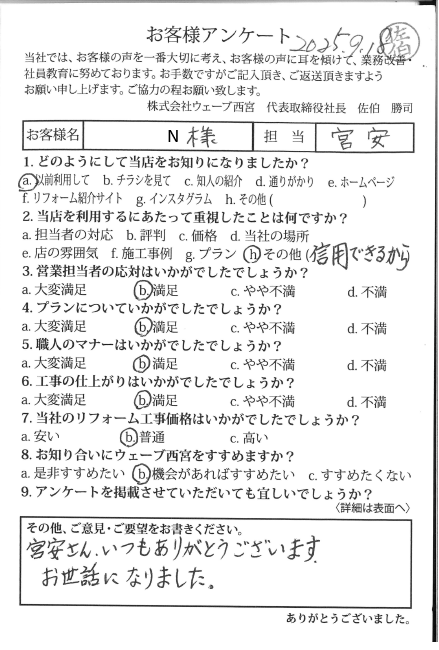 お客様アンケート 2025.9.18 佐伯
当社では、お客様の声を一番大切に考え、お客様の声に耳を傾けて、業務改善・
社員教育に努めております。お手数ですがご記入頂き、ご返送頂きますよう
お願い申し上げます。ご協力の程お願い致します。
株式会社ウェーブ西宮 代表取締役社長 佐伯 勝司
お客様名 N 様 担 当 宮安
1. どのようにして当店をお知りになりましたか？
a. 以前利用して b. チラシを見て c. 知人の紹介 d. 通りがかり e. ホームページ
f. リフォーム紹介サイト g. インスタグラム h. その他 ( )
2. 当店を利用するにあたって重視したことは何ですか？
a. 担当者の対応 b. 評判 c. 価格 d. 当社の場所
e. 店の雰囲気 f. 施工事例 g. プラン h その他 (信用できるから)
3. 営業担当者の応対はいかがでしたでしょうか？
a. 大変満足 b. 満足 c. やや不満 d. 不満
4. プランについていかがでしたでしょうか？
a. 大変満足 b. 満足 c. やや不満 d. 不満
5. 職人のマナーはいかがでしたでしょうか？
a. 大変満足 b. 満足 c. やや不満 d. 不満
6. 工事の仕上がりはいかがでしたでしょうか？
a. 大変満足 b. 満足 c. やや不満 d. 不満
7. 当社のリフォーム工事価格はいかがでしたでしょうか？
a. 安い b. 普通 c. 高い
8. お知り合いにウェーブ西宮をすすめますか？
a. 是非すすめたい b. 機会があればすすめたい c. すすめたくない
9. アンケートを掲載させていただいても宜しいでしょうか？
〈詳細は表面へ〉
その他、ご意見・ご要望をお書きください。
宮安さん、いつもありがとうございます。
お世話になりました。
ありがとうございました。